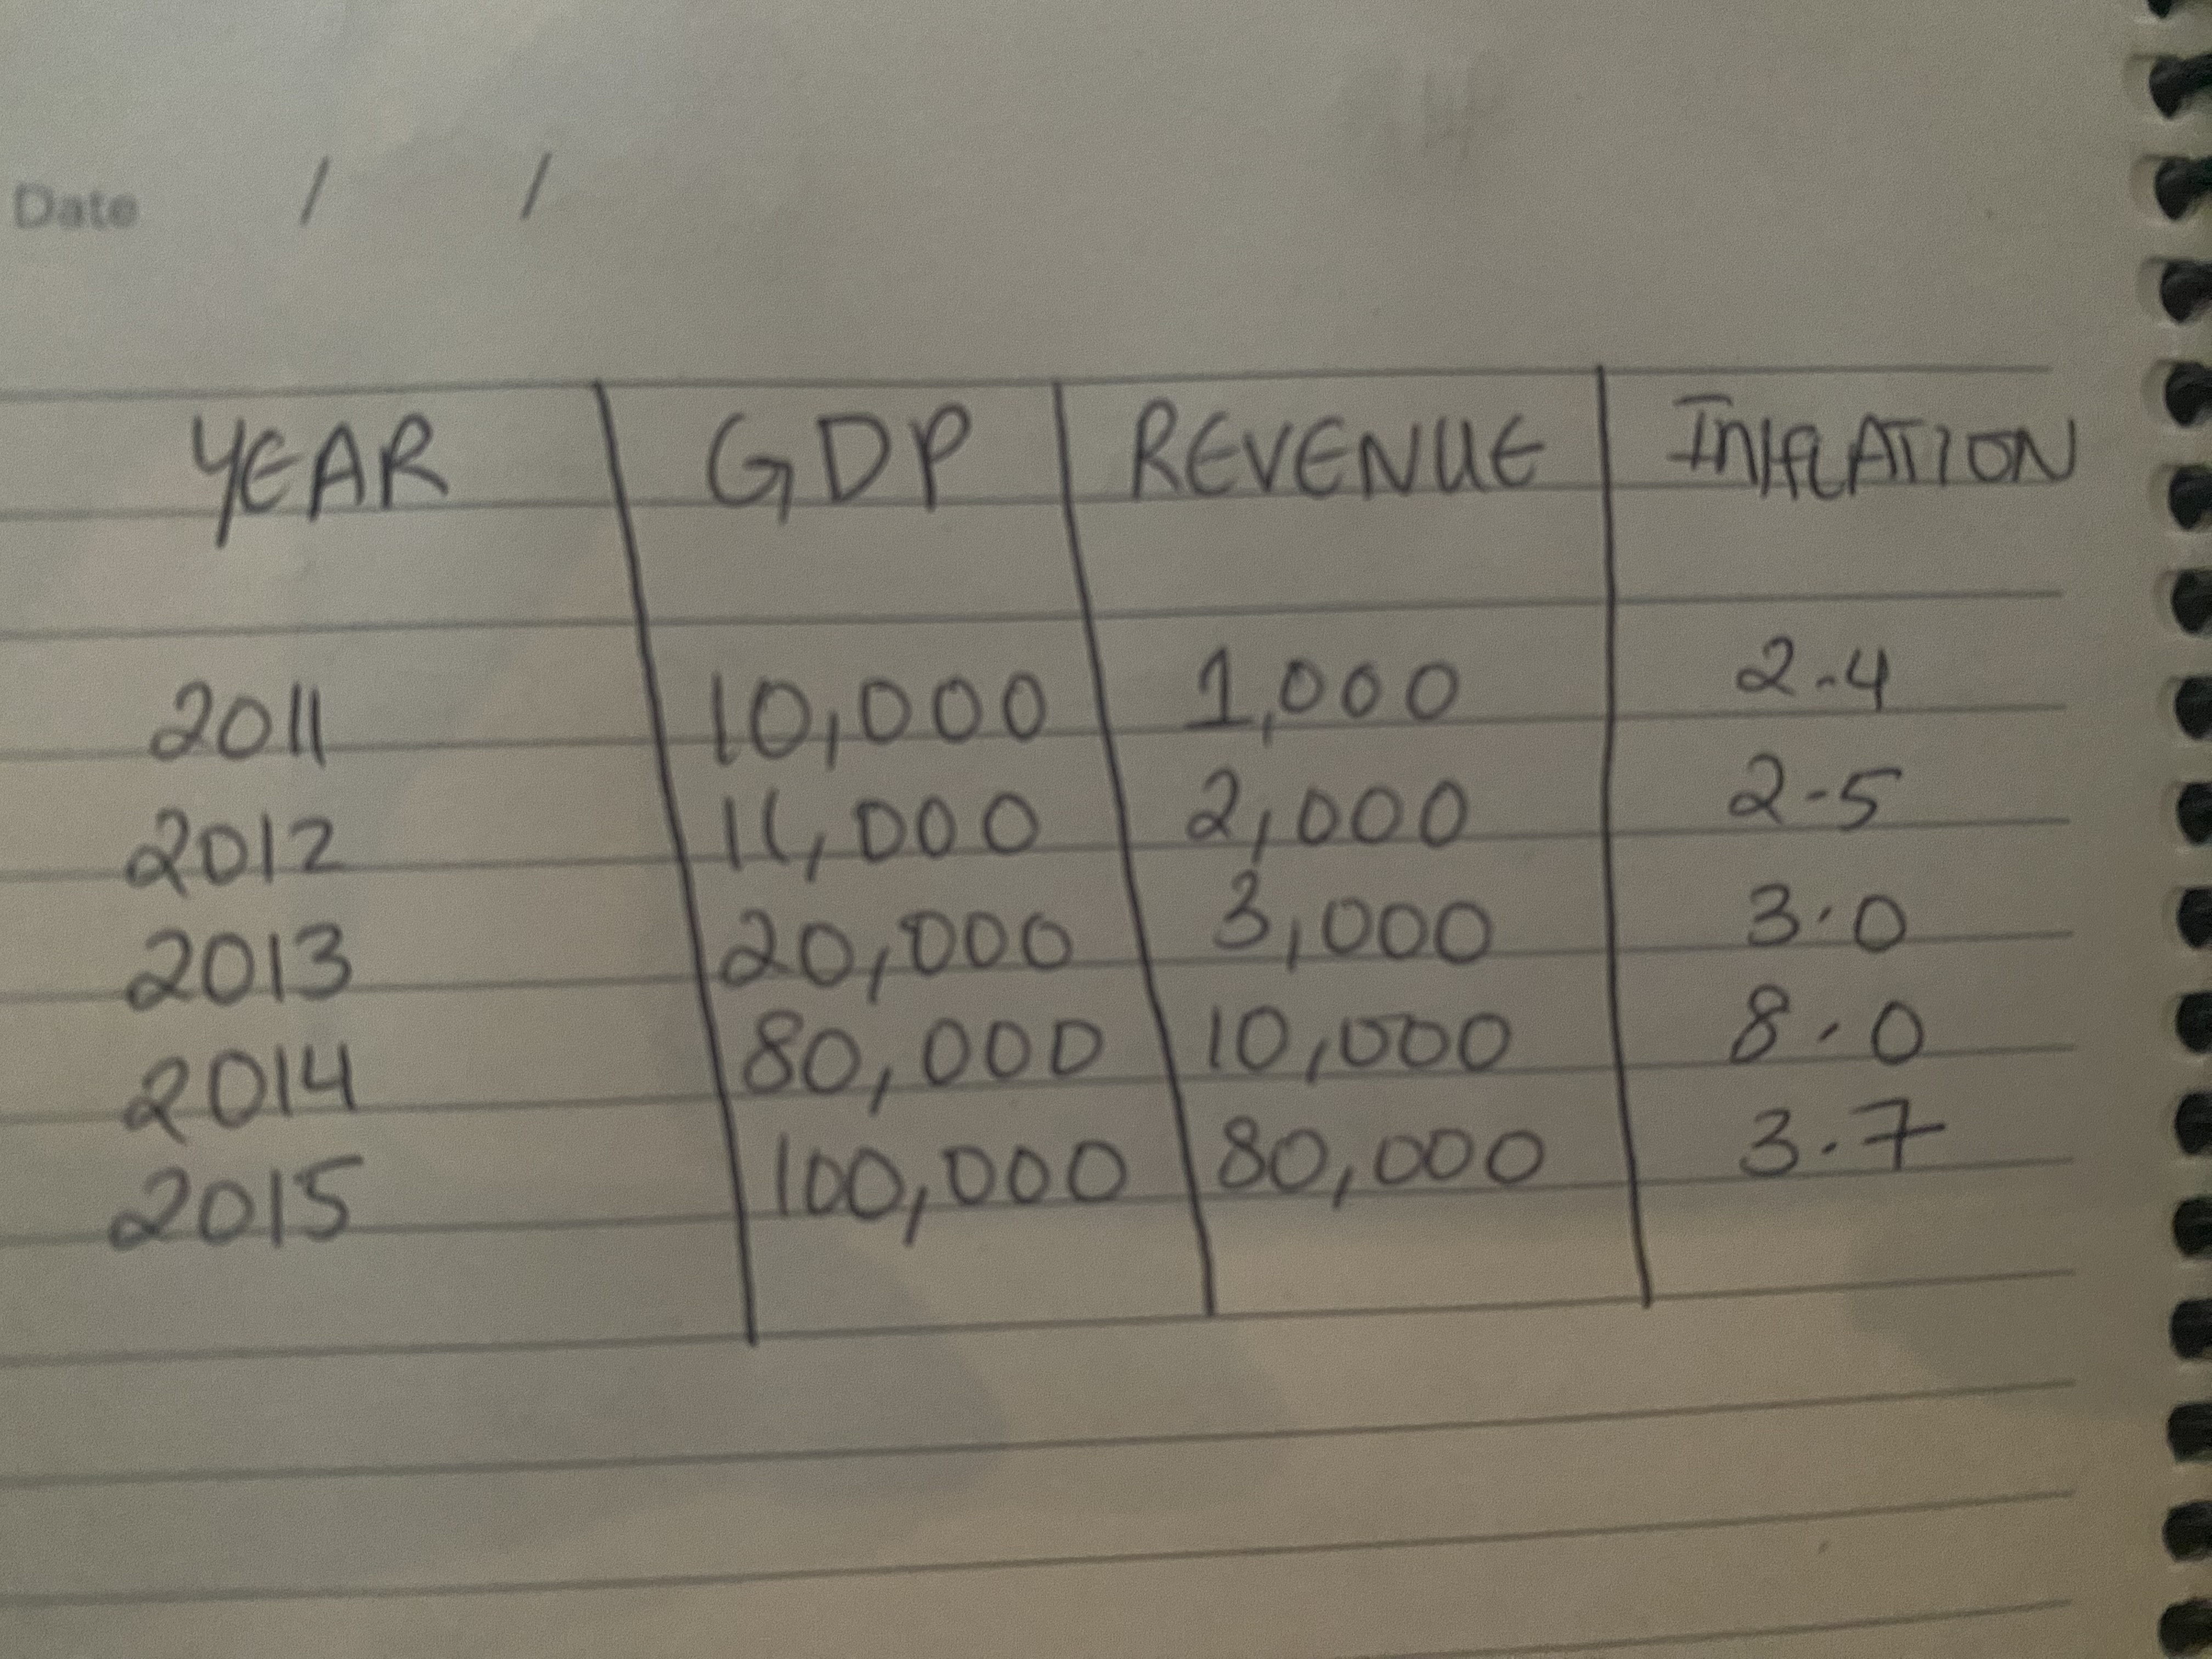 Date / /
YEAR GDP REVENUE INFLATION
2011 10,000 1,000 2.4
2012 11,000 2,000 2.5
2013 20,000 3,000 3.0
2014 80,000 10,000 8.0
2015 100,000 80,000 3.7